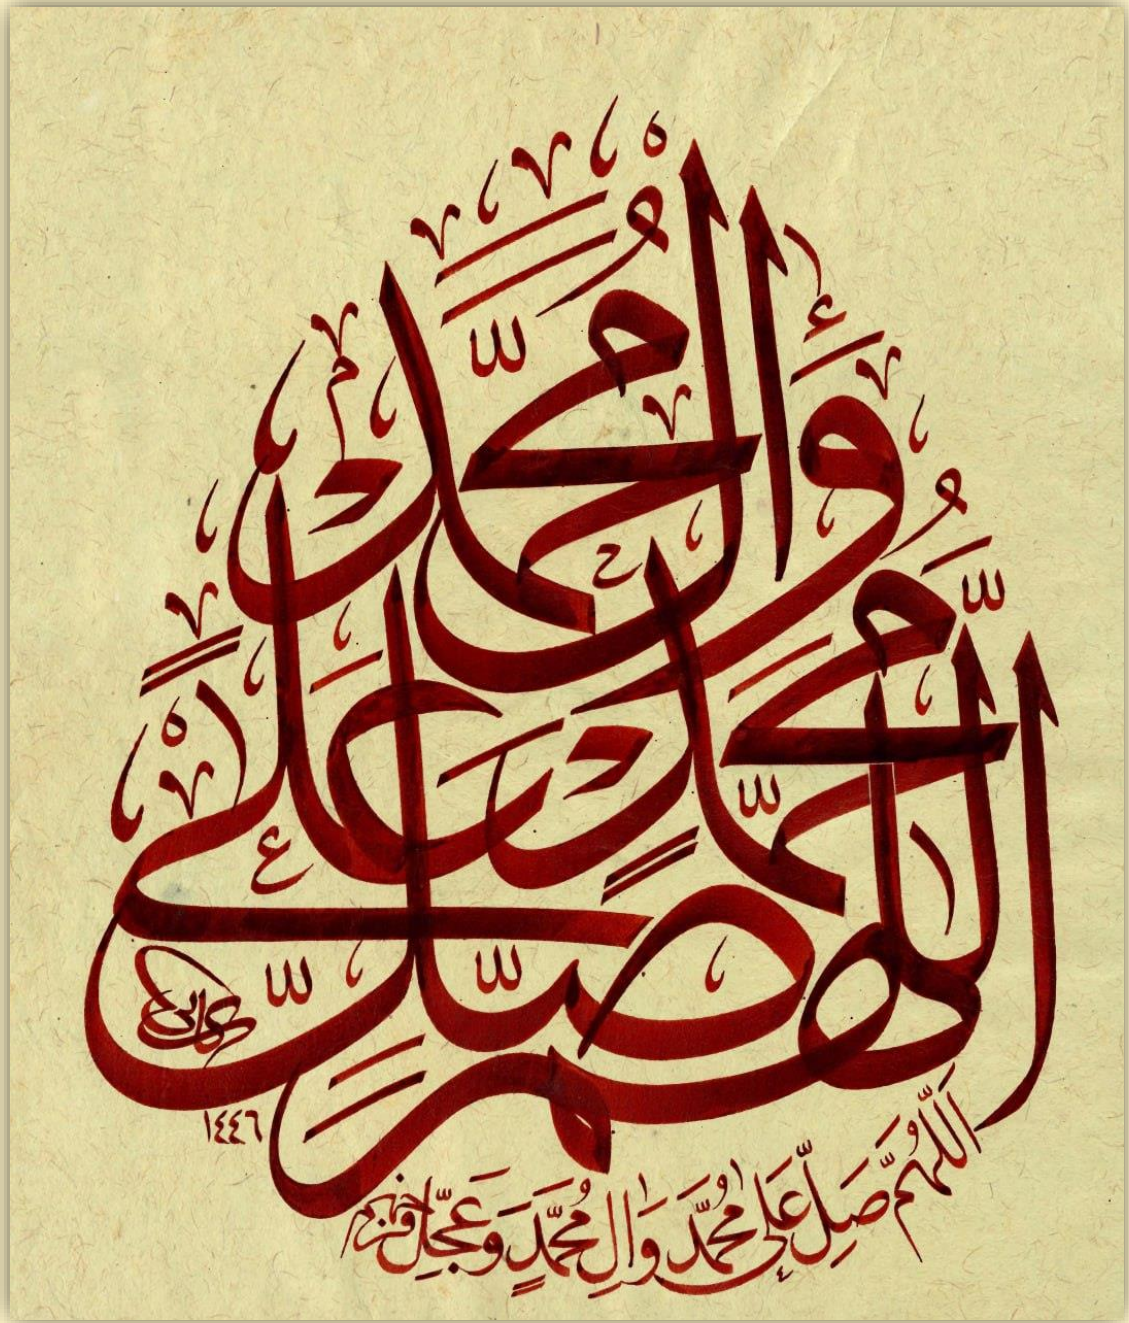 اللَّهُمَّ صَلِّ عَلَى مُحَمَّدٍ وَآلِ مُحَمَّدٍ
١٤٤٦
اللَّهُمَّ صَلِّ عَلَى مُحَمَّدٍ وَآلِ مُحَمَّدٍ وَعَجِّلْ فَرَجَهُمْ